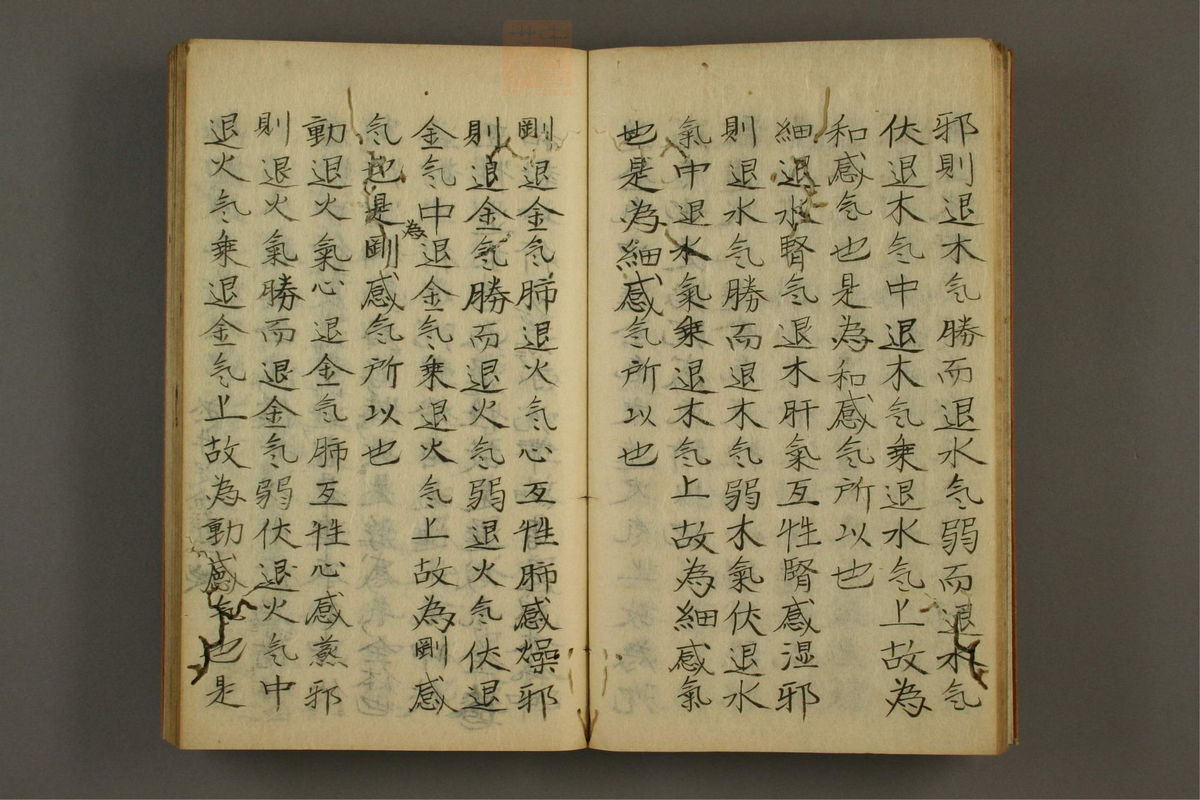 邪則退木気勝而退水気弱而退水気
伏退木気中退木気乗退水気上故為
和感気也是為和感気所以也
細退水腎気退木肝氣互性腎感湿邪
則退水気勝而退木気弱木氣伏退水
氣中退水氣乗退木気上故為細感氣
也是為細感気所以也
剛退金気肺退火気心互性肺感燥邪
則退金気勝而退火気弱退火気伏退
金気中退金気乗退火気上故為剛感
気也是為剛感気所以也
動退火氣心退金気肺互性心感蒸邪
則退火氣勝而退金気弱伏退火気中
退火気乗退金気上故為動感気也是